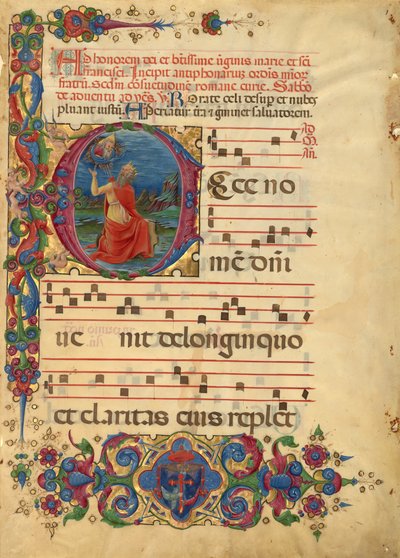 Ad honorem dei et btissime uirginis marie et sci
francisci. Incipit antiphonariuz ordis mior
fratru. Scdm cosuetudine romane curie. Sabbo
de aduentu ad ues. ℣ Rorate celi desup et nubes
pluant iustu. A Aperiatur tra et gminet saluatorem.
Ad
M.
An.
Ecce no
me dni
ue nit de longinquo
et claritas eius replet